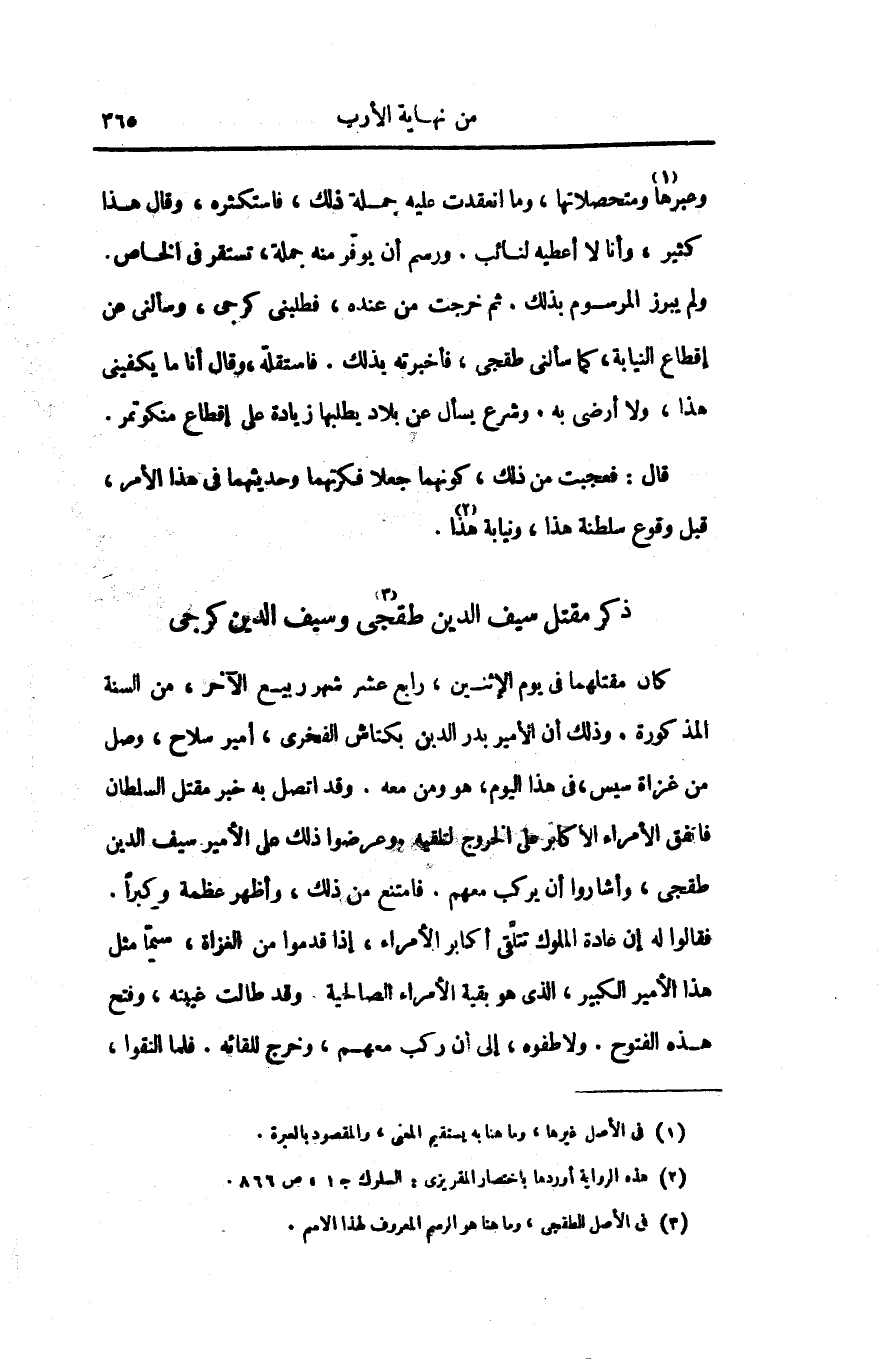 من نهاية الأرب ٣٦٥
وعبرها(١) ومتحصلاتها ، وما انعقدت عليه جملة ذلك ، فاستكثره ، وقال هذا
كثير ، وأنا لا أعطيه لنائب . ورسم أن يوفّر منه جملة ، تستقر فى الخاص .
ولم يبرز المرسوم بذلك . ثم خرجت من عنده ، فطلبنى كرجى ، وسألنى عن
إقطاع النيابة ، كما سألنى طقجى ، فأخبرته بذلك . فاستقلّه ، وقال أنا ما يكفينى
هذا ، ولا أرضى به . وشرع يسأل عن بلاد يطلبها زيادة على إقطاع منكوتمر .
قال : فعجبت من ذلك ، كونهما جعلا فكرتهما وحديثهما فى هذا الأمر ،
قبل وقوع سلطنة هذا ، ونيابة هذا(٢) .
ذكر مقتل سيف الدين طقجى(٣) وسيف الدين كرجى
كان مقتلهما فى يوم الإثنين ، رابع عشر شهر ربيع الآخر ، من السنة
المذكورة . وذلك أن الأمير بدر الدين بكتاش الفخرى ، أمير سلاح ، وصل
من غزاة سيس ، فى هذا اليوم ، هو ومن معه . وقد اتصل به خبر مقتل السلطان
فاتفق الأمراء الأكابر على الخروج لتلقيه . وعرضوا ذلك على الأمير سيف الدين
طقجى ، وأشاروا أن يركب معهم . فامتنع من ذلك ، وأظهر عظمة وكبراً .
فقالوا له إن عادة الملوك تتلقّى أكابر الأمراء ، إذا قدموا من الغزاة ، سيّما مثل
هذا الأمير الكبير ، الذى هو بقية الأمراء الصالحية . وقد طالت غيبته ، وفتح
هذه الفتوح . ولاطفوه ، إلى أن ركب معهم ، وخرج للقائه . فلما التقوا ،
(١) فى الأصل غيرها ، وما هنا به يستقيم المعنى ، والمقصود بالعبرة .
(٢) هذه الرواية أوردها باختصار المقريزى : السلوك ج ١ ، ص ٨٦٦ .
(٣) فى الأصل الطقجى ، وما هنا هو الرسم المعروف لهذا الاسم .